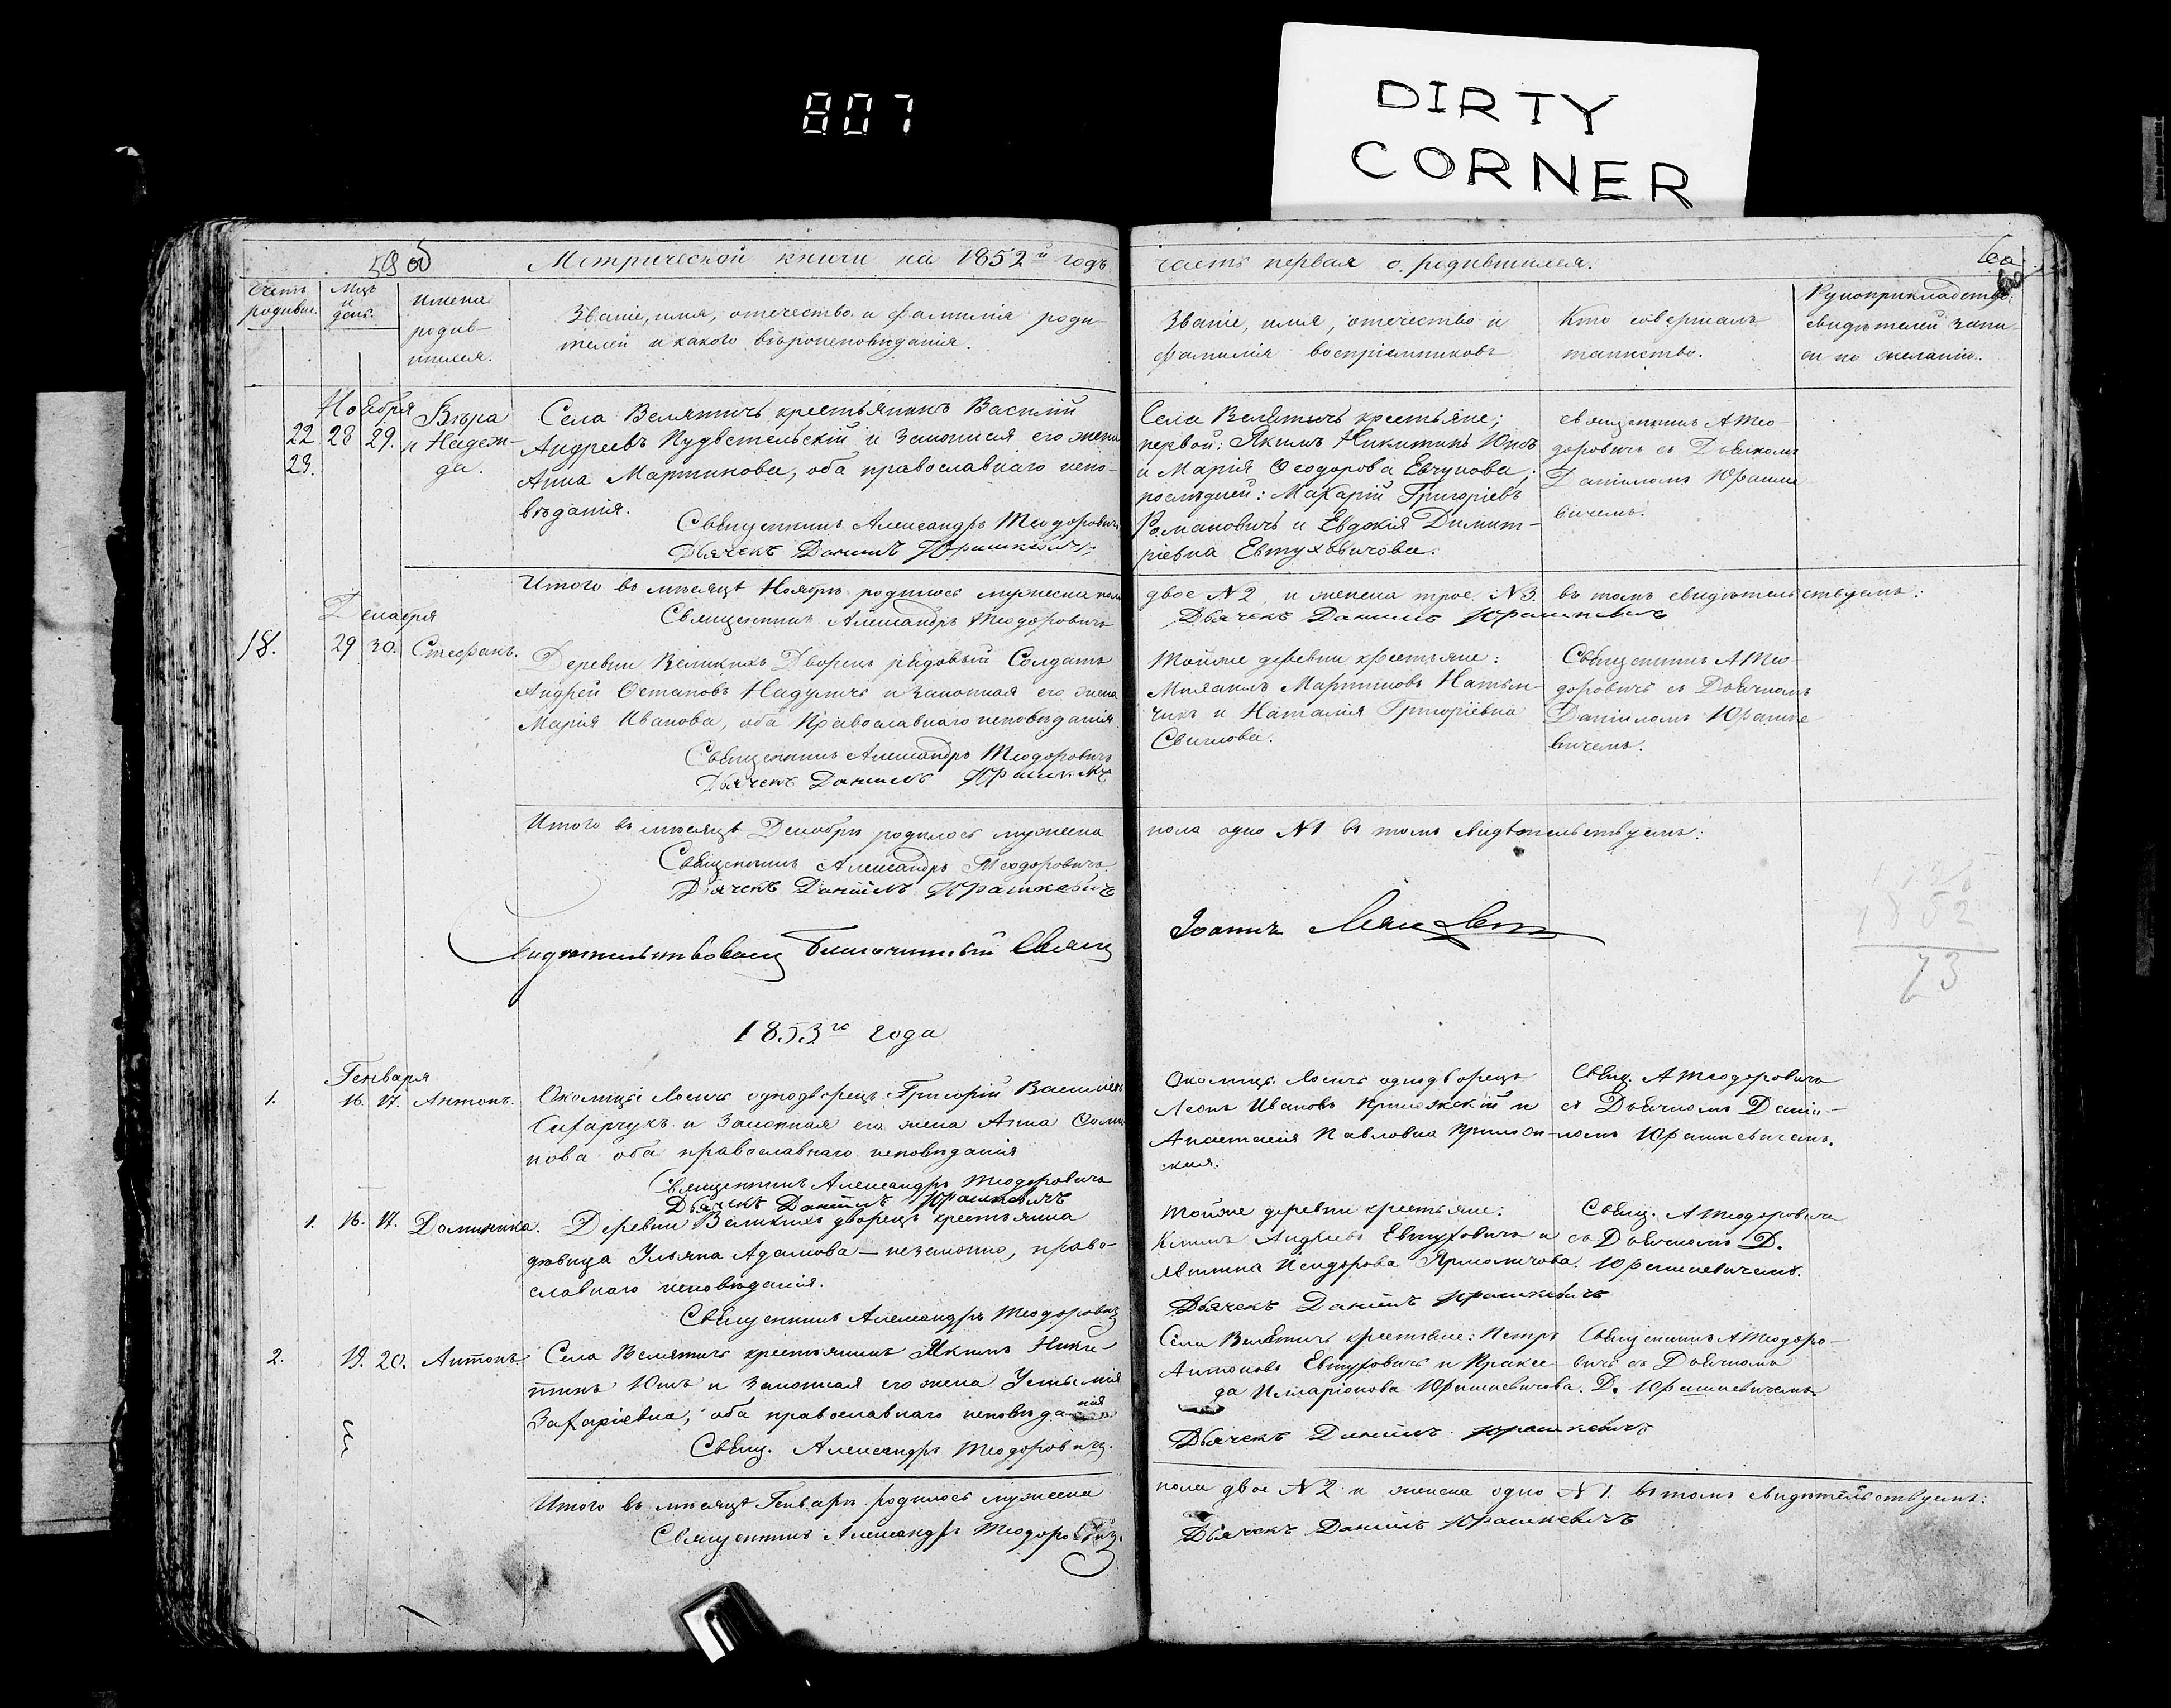 807
DIRTY
CORNER
59 об
Метрической книги на 1852й годъ
часть первая о родившихся.
60
Мцъ
и
день.
имена
родив-
шихся.
Званіе, имя, отечество и фамилія роди-
телей и какого вѣроисповѣданія.
Званіе, имя, отечество и
фамилія воспріемниковъ
Кто совершалъ
таинство.
Рукоприкладство
свидѣтелей запи-
си по желанію.
Ноября
22 28 29.
23.
Вѣра
и Надеж-
да.
Села Велятичь крестьянинъ Василій
Андреевъ и Законная его жена
Анна Мартинова, оба православнаго испо-
вѣданія.
Священникъ Александръ Теодоровичъ
Дьячекъ Даніилъ Юрашкевичъ
Села Велятичь крестьяне;
первой: Якимъ Никитинъ Юшъ
и Марія Ѳеодорова
послѣдней: Макарій Григоріевъ
Романовичъ и Евдокія Димит-
ріевна Евтуховичова.
Священникъ А Тео-
доровичъ съ Дьячкомъ
Даніиломъ Юрашке
вичемъ.
Итого въ мѣсяцѣ Ноябрѣ родилось мужеска пола
двое N 2 и женска трое N 3. въ томъ свидѣтельствуемъ:
Священникъ Александръ Теодоровичъ
Дьячекъ Даніилъ Юрашкевичъ
Декабря
18. 29 30. Стефанъ.
Деревни Великихъ Дворецъ рядовый Солдатъ
Андрей Остаповъ и законная его жена
Марія Иванова, оба Православнаго исповѣданія.
Священникъ Александръ Теодоровичъ
Дьячекъ Даніилъ Юрашкевичъ
Тойже деревни крестьяне:
Михаилъ Мартиновъ
чикъ и Наталія Григоріевна
Священникъ А Тео-
доровичъ съ Дьячкомъ
Даніиломъ Юрашке
вичемъ.
Итого въ мѣсяцѣ Декабрѣ родилось мужеска
пола одно N 1 въ томъ свидѣтельствуемъ:
Священникъ Александръ Теодоровичъ
Дьячекъ Даніилъ Юрашкевичъ
Благочинный Свящ
Іоаннъ
1852
73
1853го года
Генваря
1. 16. 17. Антонъ.
Околицы Лосичь однодворецъ Григорій Василіевъ
и Законная его жена Анна
нова оба православнаго исповѣданія
Священникъ Александръ Теодоровичъ
Дьячекъ Даніилъ Юрашкевичъ
Околицы Лосичь однодворецъ
Леонъ Ивановъ и
Анастасія Павловна
ская.
Свящ. А Теодоровичъ
съ Дьячкомъ Даніи-
ломъ Юрашкевичемъ.
1. 16. 17. Доминика.
Деревни Великихъ дворецъ крестьянка
дѣвица Ульяна Адамова — незаконно, право-
славнаго исповѣданія.
Священникъ Александръ Теодоровичъ
Тойже деревни крестьяне:
Климъ Андреевъ Евтуховичъ и
Исидорова
Дьячекъ Даніилъ Юрашкевичъ
Свящ. А Теодоровичъ
съ Дьячкомъ Д.
Юрашкевичемъ.
2. 19. 20. Антонъ
Села Велятичь крестьянинъ Якимъ Ники-
тинъ Юшъ и Законная его жена
Захаріевна, оба православнаго исповѣданія
Свящ. Александръ Теодоровичъ.
Села Велятичь крестьяне: Петръ
Антоновъ Евтуховичъ и Праксе-
да Илларіонова Юрашкевичова.
Дьячекъ Даніилъ Юрашкевичъ
Священникъ А Теодоро-
вичъ съ Дьячкомъ
Д. Юрашкевичемъ
Итого въ мѣсяцѣ Генварѣ родилось мужеска
пола двое N 2 и женска одно N 1. въ томъ свидѣтельствуемъ:
Священникъ Александръ Теодоровичъ.
Дьячекъ Даніилъ Юрашкевичъ